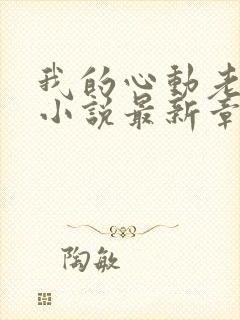 我的心动老
小说最新章
陶敏